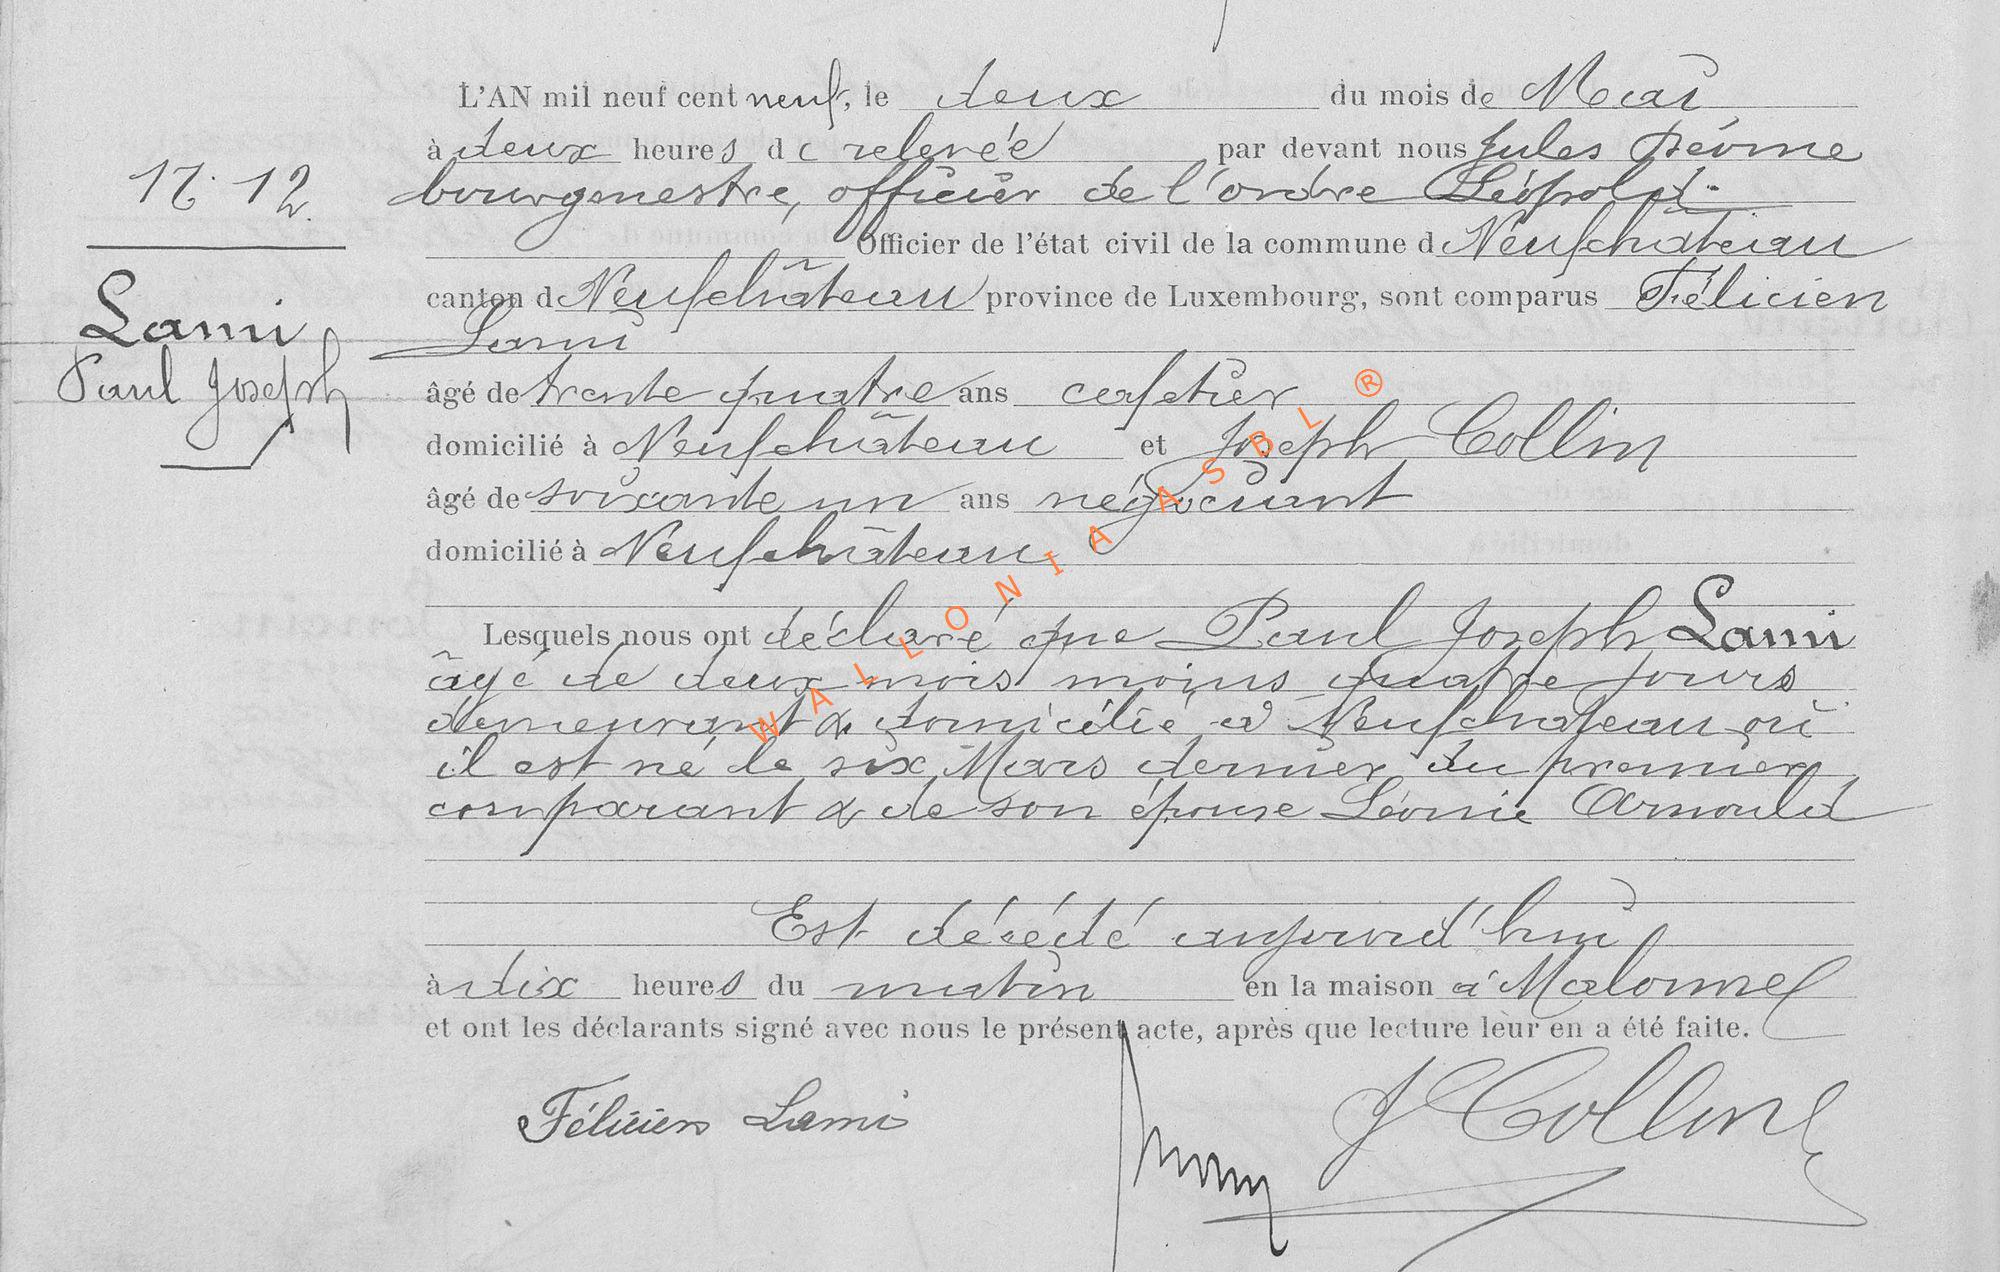 L'AN mil neuf cent neuf, le deux du mois de Mai
à deux heures de relevée par devant nous Jules
bourgmestre, officier de l'ordre Léopold.
Officier de l'état civil de la commune d Neufchâteau
canton d Neufchâteau province de Luxembourg, sont comparus Félicien
Lami
âgé de trente quatre ans cafetier
domicilié à Neufchâteau et Joseph Collin
âgé de soixante un ans négociant
domicilié à Neufchâteau
Lesquels nous ont déclaré que Paul Joseph Lami
âgé de deux mois moins quatre jours
demeurant & domicilié à Neufchateau où
il est né le six Mars dernier du premier
comparant & de son épouse Léonie Arnould
Est décédé aujourd'hui
à dix heures du matin en la maison à Malome
et ont les déclarants signé avec nous le présent acte, après que lecture leur en a été faite.
Félicien Lami
J Collin
12
Lami
Paul Joseph
WALLONIA ASBL ®